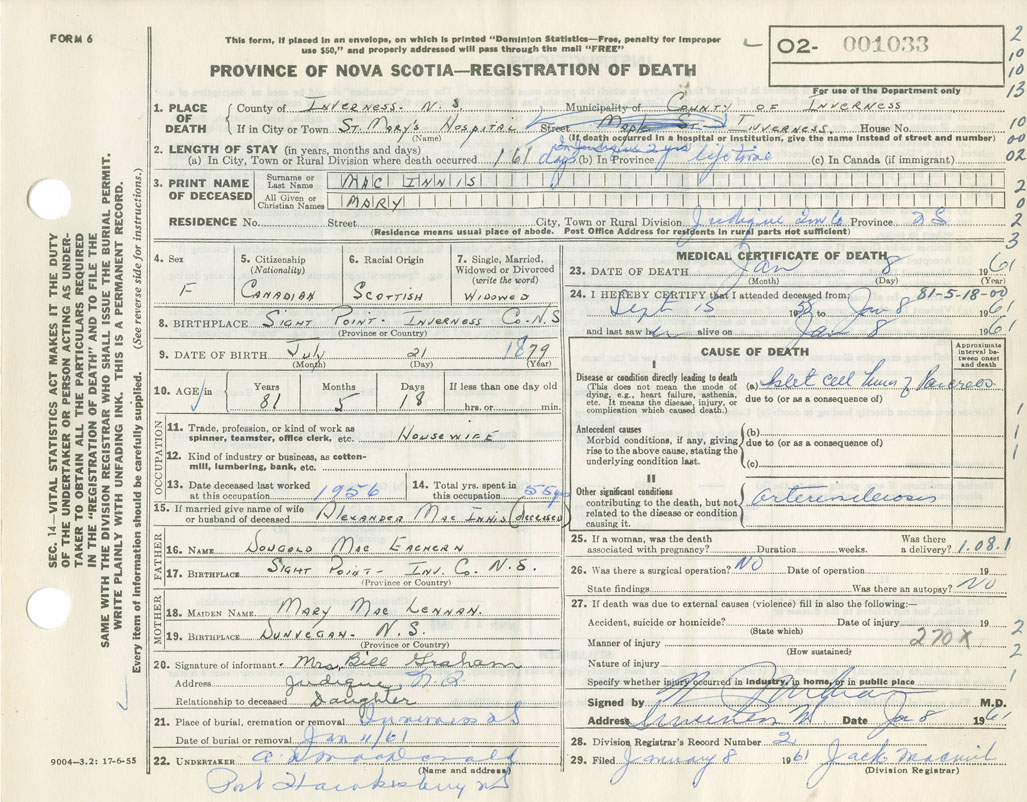 FORM 6
This form, if placed in an envelope, on which is printed "Dominion Statistics—Free, penalty for improper
use $50," and properly addressed will pass through the mail "FREE"
PROVINCE OF NOVA SCOTIA—REGISTRATION OF DEATH
O2- 001033
For use of the Department only
1. PLACE OF DEATH
County of INVERNESS - N.S. Municipality of COUNTY OF INVERNESS
If in City or Town ST. MARY'S HOSPITAL Street INVERNESS, House No.
(Name) (If death occurred in a hospital or institution, give the name instead of street and number)
2. LENGTH OF STAY (in years, months and days)
(a) In City, Town or Rural Division where death occurred 161 days (b) In Province lifetime (c) In Canada (if immigrant)
3. PRINT NAME OF DECEASED
Surname or Last Name MAC INNIS
All Given or Christian Names MARY
RESIDENCE No. Street City, Town or Rural Division Judique Province N S
(Residence means usual place of abode. Post Office Address for residents in rural parts not sufficient)
4. Sex F
5. Citizenship (Nationality) CANADIAN
6. Racial Origin SCOTTISH
7. Single, Married, Widowed or Divorced (write the word) WIDOWED
8. BIRTHPLACE SIGHT POINT - INVERNESS CO. N.S.
(Province or Country)
9. DATE OF BIRTH July 21 1879
(Month) (Day) (Year)
10. AGE Years 81 Months 5 Days 18 If less than one day old hrs. or min.
OCCUPATION
11. Trade, profession, or kind of work as spinner, teamster, office clerk, etc. HOUSEWIFE
12. Kind of industry or business, as cotton-mill, lumbering, bank, etc.
13. Date deceased last worked at this occupation 1956
14. Total yrs. spent in this occupation 55 yrs
15. If married give name of wife or husband of deceased ALEXANDER MAC INNIS (deceased)
FATHER
16. NAME DOUGALD MAC EACHERN
17. BIRTHPLACE SIGHT POINT - INV. CO. N.S.
(Province or Country)
MOTHER
18. MAIDEN NAME MARY MAC LENNAN.
19. BIRTHPLACE DUNVEGAN - N.S.
(Province or Country)
20. Signature of informant - Mrs. Bill Graham
Address Judique, N.S.
Relationship to deceased Daughter
21. Place of burial, cremation or removal Inverness N S
Date of burial or removal Jan 11/61
22. UNDERTAKER MacDonald
(Name and address)
Port Hawkesbury N S
9004—3.2: 17-6-55
MEDICAL CERTIFICATE OF DEATH
23. DATE OF DEATH Jan 8 1961
(Month) (Day)
81-5-18-00
24. I HEREBY CERTIFY that I attended deceased from
Sept 15 19 to Jan 8 1961
and last saw her alive on Jan 8 1961
CAUSE OF DEATH
Approximate interval between onset and death
I
Disease or condition directly leading to death (This does not mean the mode of dying, e.g., heart failure, asthenia, etc. It means the disease, injury, or complication which caused death.)
(a) Islet cell tumor of Pancreas
due to (or as a consequence of)
Antecedent causes
Morbid conditions, if any, giving rise to the above cause, stating the underlying condition last.
(b)
due to (or as a consequence of)
(c)
II
Other significant conditions contributing to the death, but not related to the disease or condition causing it.
arteriosclerosis
25. If a woman, was the death associated with pregnancy? Duration weeks. Was there a delivery? 1.08.1
26. Was there a surgical operation? NO Date of operation 19
State findings Was there an autopsy? NO
27. If death was due to external causes (violence) fill in also the following:—
Accident, suicide or homicide? Date of injury 19
(State which)
Manner of injury 270X
(How sustained)
Nature of injury
Specify whether injury occurred in industry, in home, or in public place
Signed by M.D.
Address Date Jan 8 1961
28. Division Registrar's Record Number 2
29. Filed January 8 1961 Jack
(Division Registrar)
SEC. 14—VITAL STATISTICS ACT MAKES IT THE DUTY
OF THE UNDERTAKER OR PERSON ACTING AS UNDER-
TAKER TO OBTAIN ALL THE PARTICULARS REQUIRED
IN THE "REGISTRATION OF DEATH" AND TO FILE THE
SAME WITH THE DIVISION REGISTRAR WHO SHALL ISSUE THE BURIAL PERMIT.
WRITE PLAINLY WITH UNFADING INK. THIS IS A PERMANENT RECORD.
Every item of information should be carefully supplied. (See reverse side for instructions.)
2
10
10
13
10
00
02
2
0
2
3
1
1
1
2
2
1